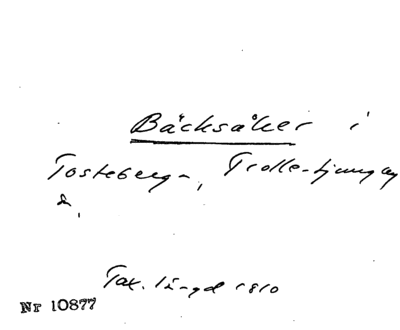 Bäcksåker i
Tosteberga, Trolle-Ljungby
Tax. längd 1810
Nr 10877